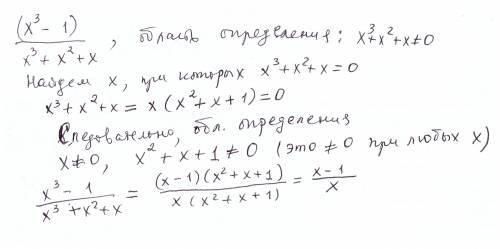 (x³ - 1) / x³ + x² + x , область определения: x³+x²+x≠0
Найдем x, при которых x³+x²+x=0
x³+x²+x = x(x²+x+1)=0
Следовательно, обл. определения
x≠0, x²+x+1≠0 (это ≠0 при любых x)
x³ - 1 / x³+x²+x = (x-1)(x²+x+1) / x(x²+x+1) = x-1 / x